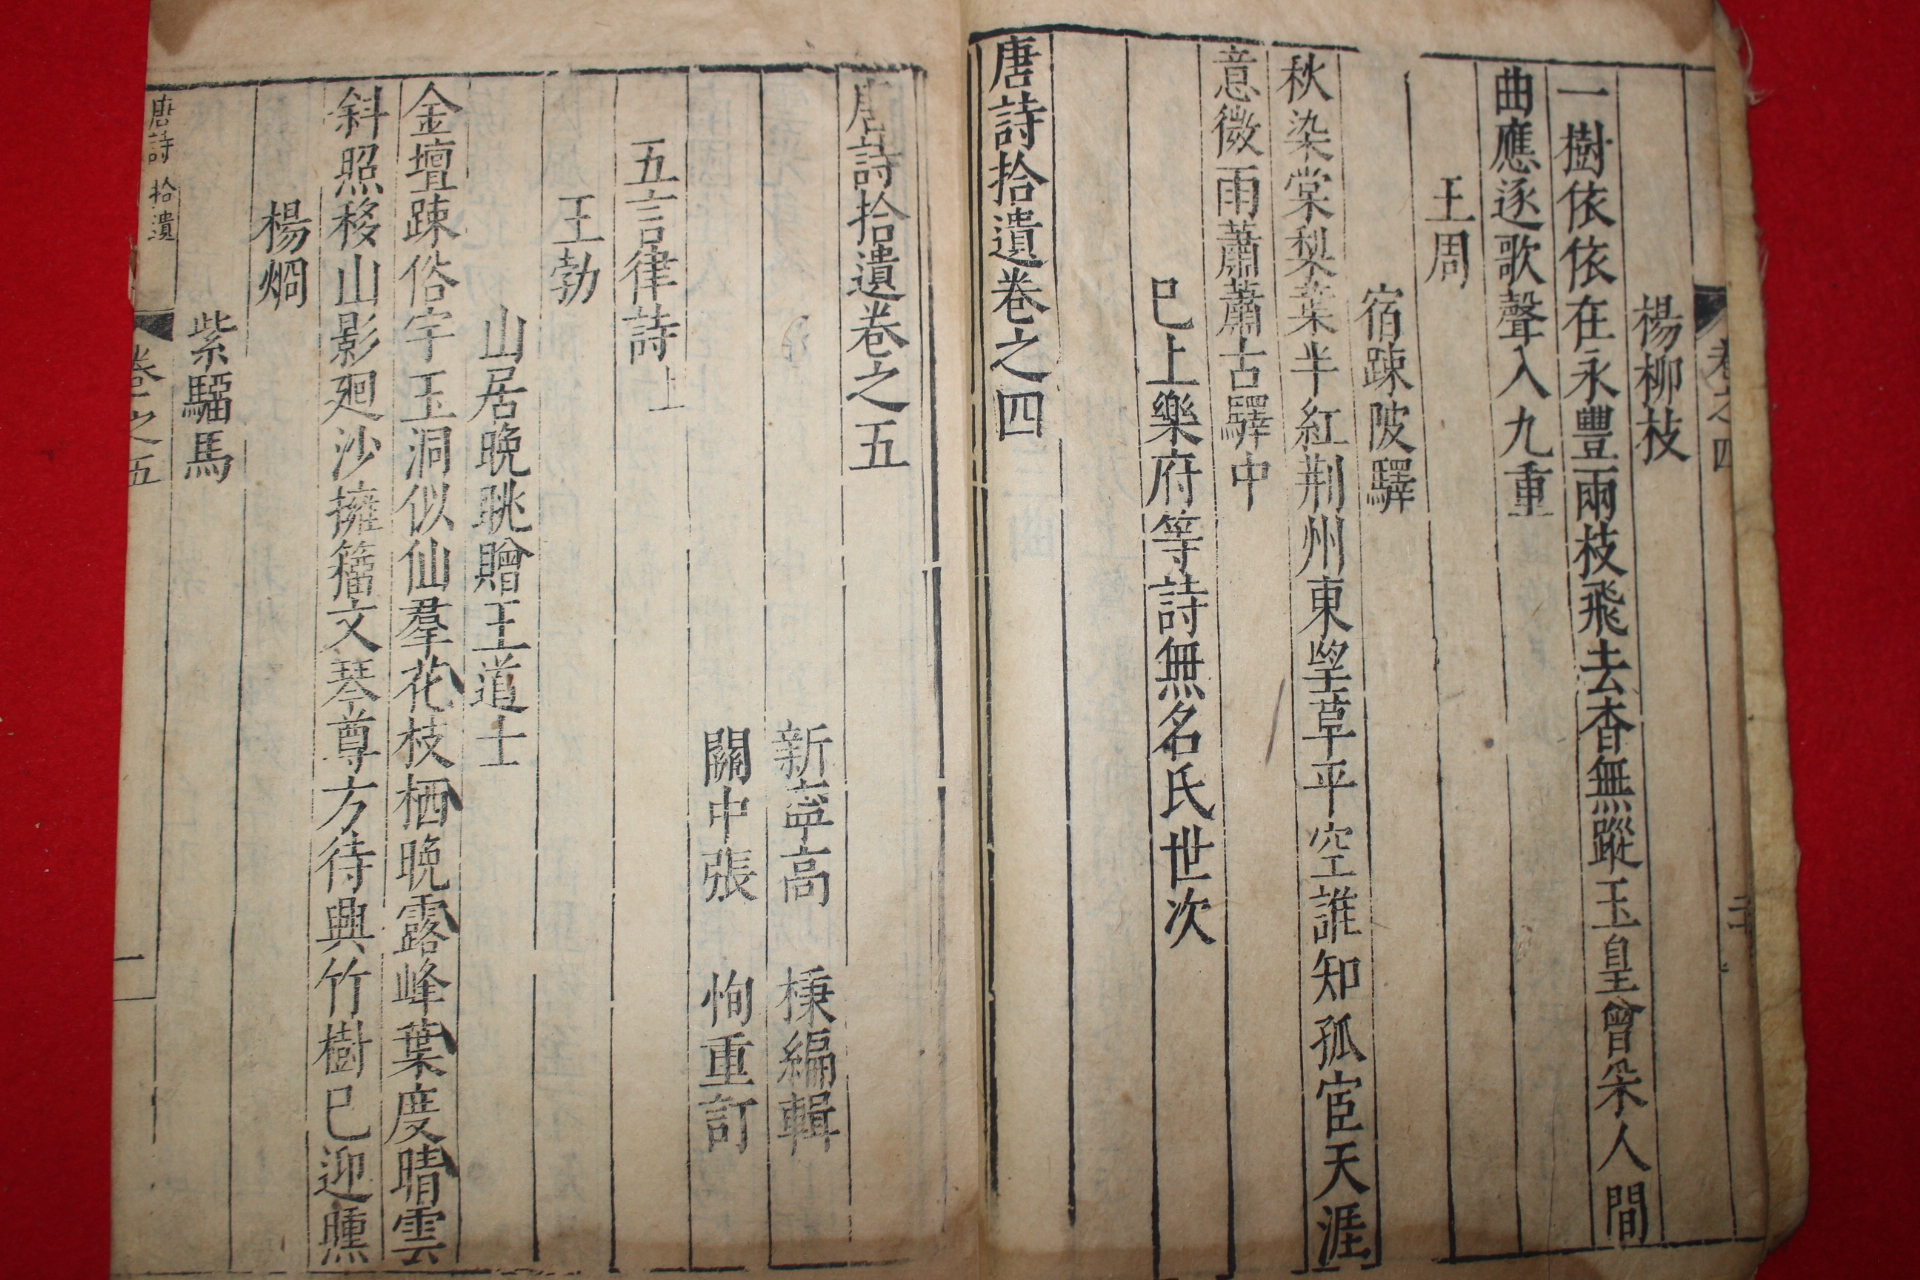 卷之四
楊柳枝
一樹依依在永豐兩枝飛去杳無蹤玉皇曾采人間
曲應逐歌聲入九重
王周
宿踈陂驛
秋染棠梨葉半紅荆州東望草平空誰知孤宦天涯
意微雨蕭蕭古驛中
巳上樂府等詩無名氏世次
唐詩拾遺卷之四
唐詩拾遺卷之五
新寧高 棅編輯
關中張 恂重訂
五言律詩上
王勃
山居晚眺贈王道士
金壇踈俗宇玉洞似仙羣花枝栖晚露峰葉度晴雲
斜照移山影廻沙擁籀文琴尊方待興竹樹巳迎曛
楊烱
紫騮馬
唐詩拾遺
卷之五
一